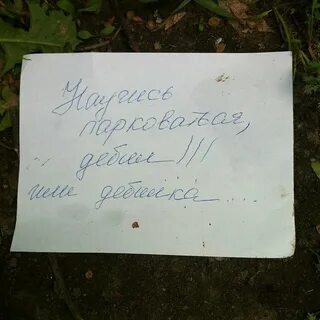 Научись
парковаться,
дебил!!!
или дебилка....